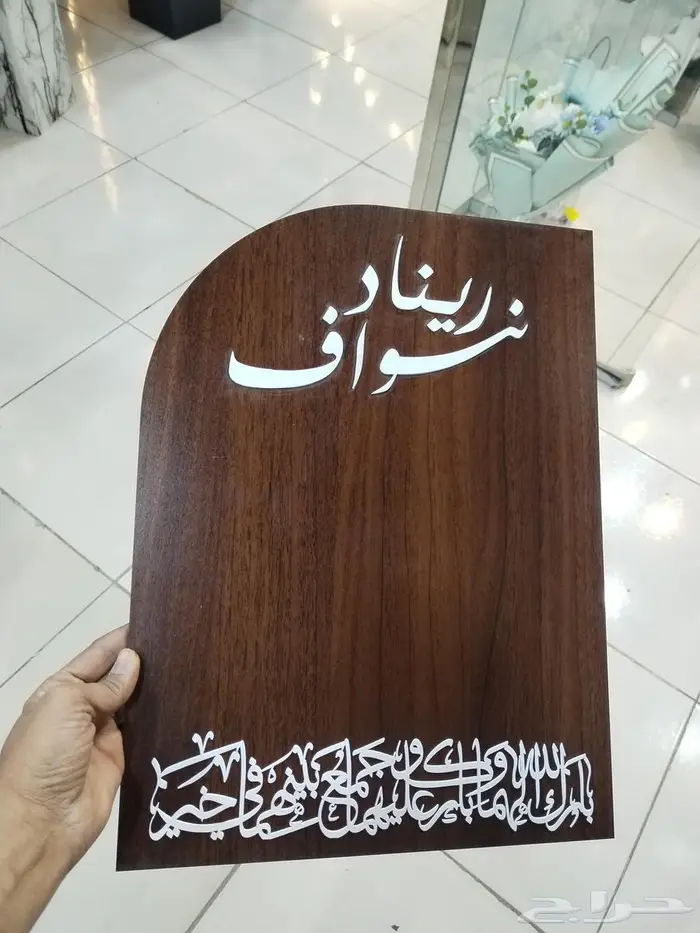 ريناد
نواف
بارك الله لهما وبارك عليهما وجمع بينهما في خير
حراج